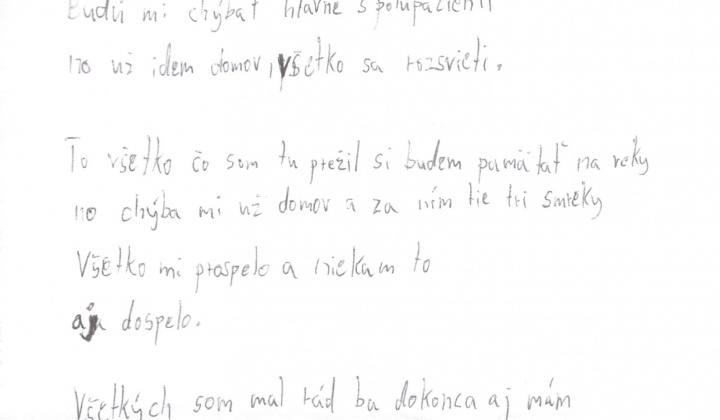 Budú mi chýbať hlavne spolupacienti
no už idem domov, všetko sa rozsvieti.
To všetko čo som tu prežil si budem pamätať na reky
no chýba mi už domov a za ním tie tri smreky
Všetko mi prospelo a niekam to
aj dospelo.
Všetkých som mal rád ba dokonca aj mám